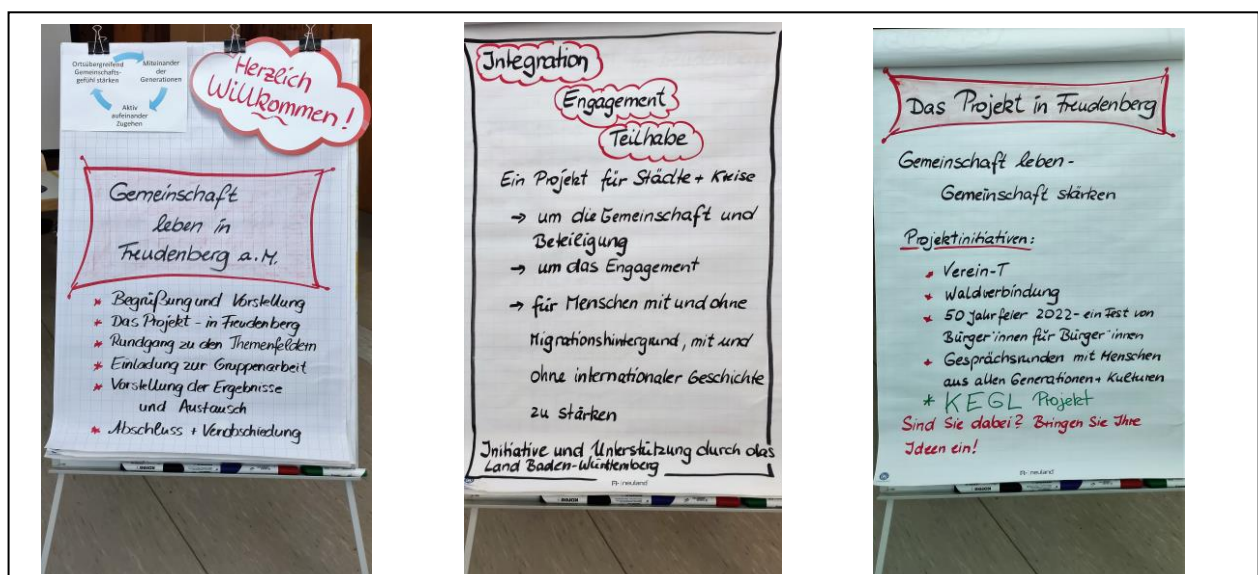 Ortsübergreifend
Gemeinschafts-
gefühl stärken
Miteinander
der
Generationen
Aktiv
aufeinander
Zugehen
Herzlich
Willkommen!
Gemeinschaft
leben in
Freudenberg a.M.
* Begrüßung und Vorstellung
* Das Projekt - in Freudenberg
* Rundgang zu den Themenfeldern
* Einladung zur Gruppenarbeit
* Vorstellung der Ergebnisse
und Austausch
* Abschluss + Verabschiedung
Integration
Engagement
Teilhabe
Ein Projekt für Städte + Kreise
→ um die Gemeinschaft und
Beteiligung
→ um das Engagement
→ für Menschen mit und ohne
Migrationshintergrund, mit und
ohne internationaler Geschichte
zu stärken
Initiative und Unterstützung durch das
Land Baden-Württemberg
neuland
Das Projekt in Freudenberg
Gemeinschaft leben -
Gemeinschaft stärken
Projektinitiativen:
* Verein-T
* Waldverbindung
* 50 Jahrfeier 2022 - ein Fest von
Bürger*innen für Bürger*innen
* Gesprächsrunden mit Menschen
aus allen Generationen + Kulturen
* KEGL Projekt
Sind Sie dabei? Bringen Sie Ihre
Ideen ein!
neuland